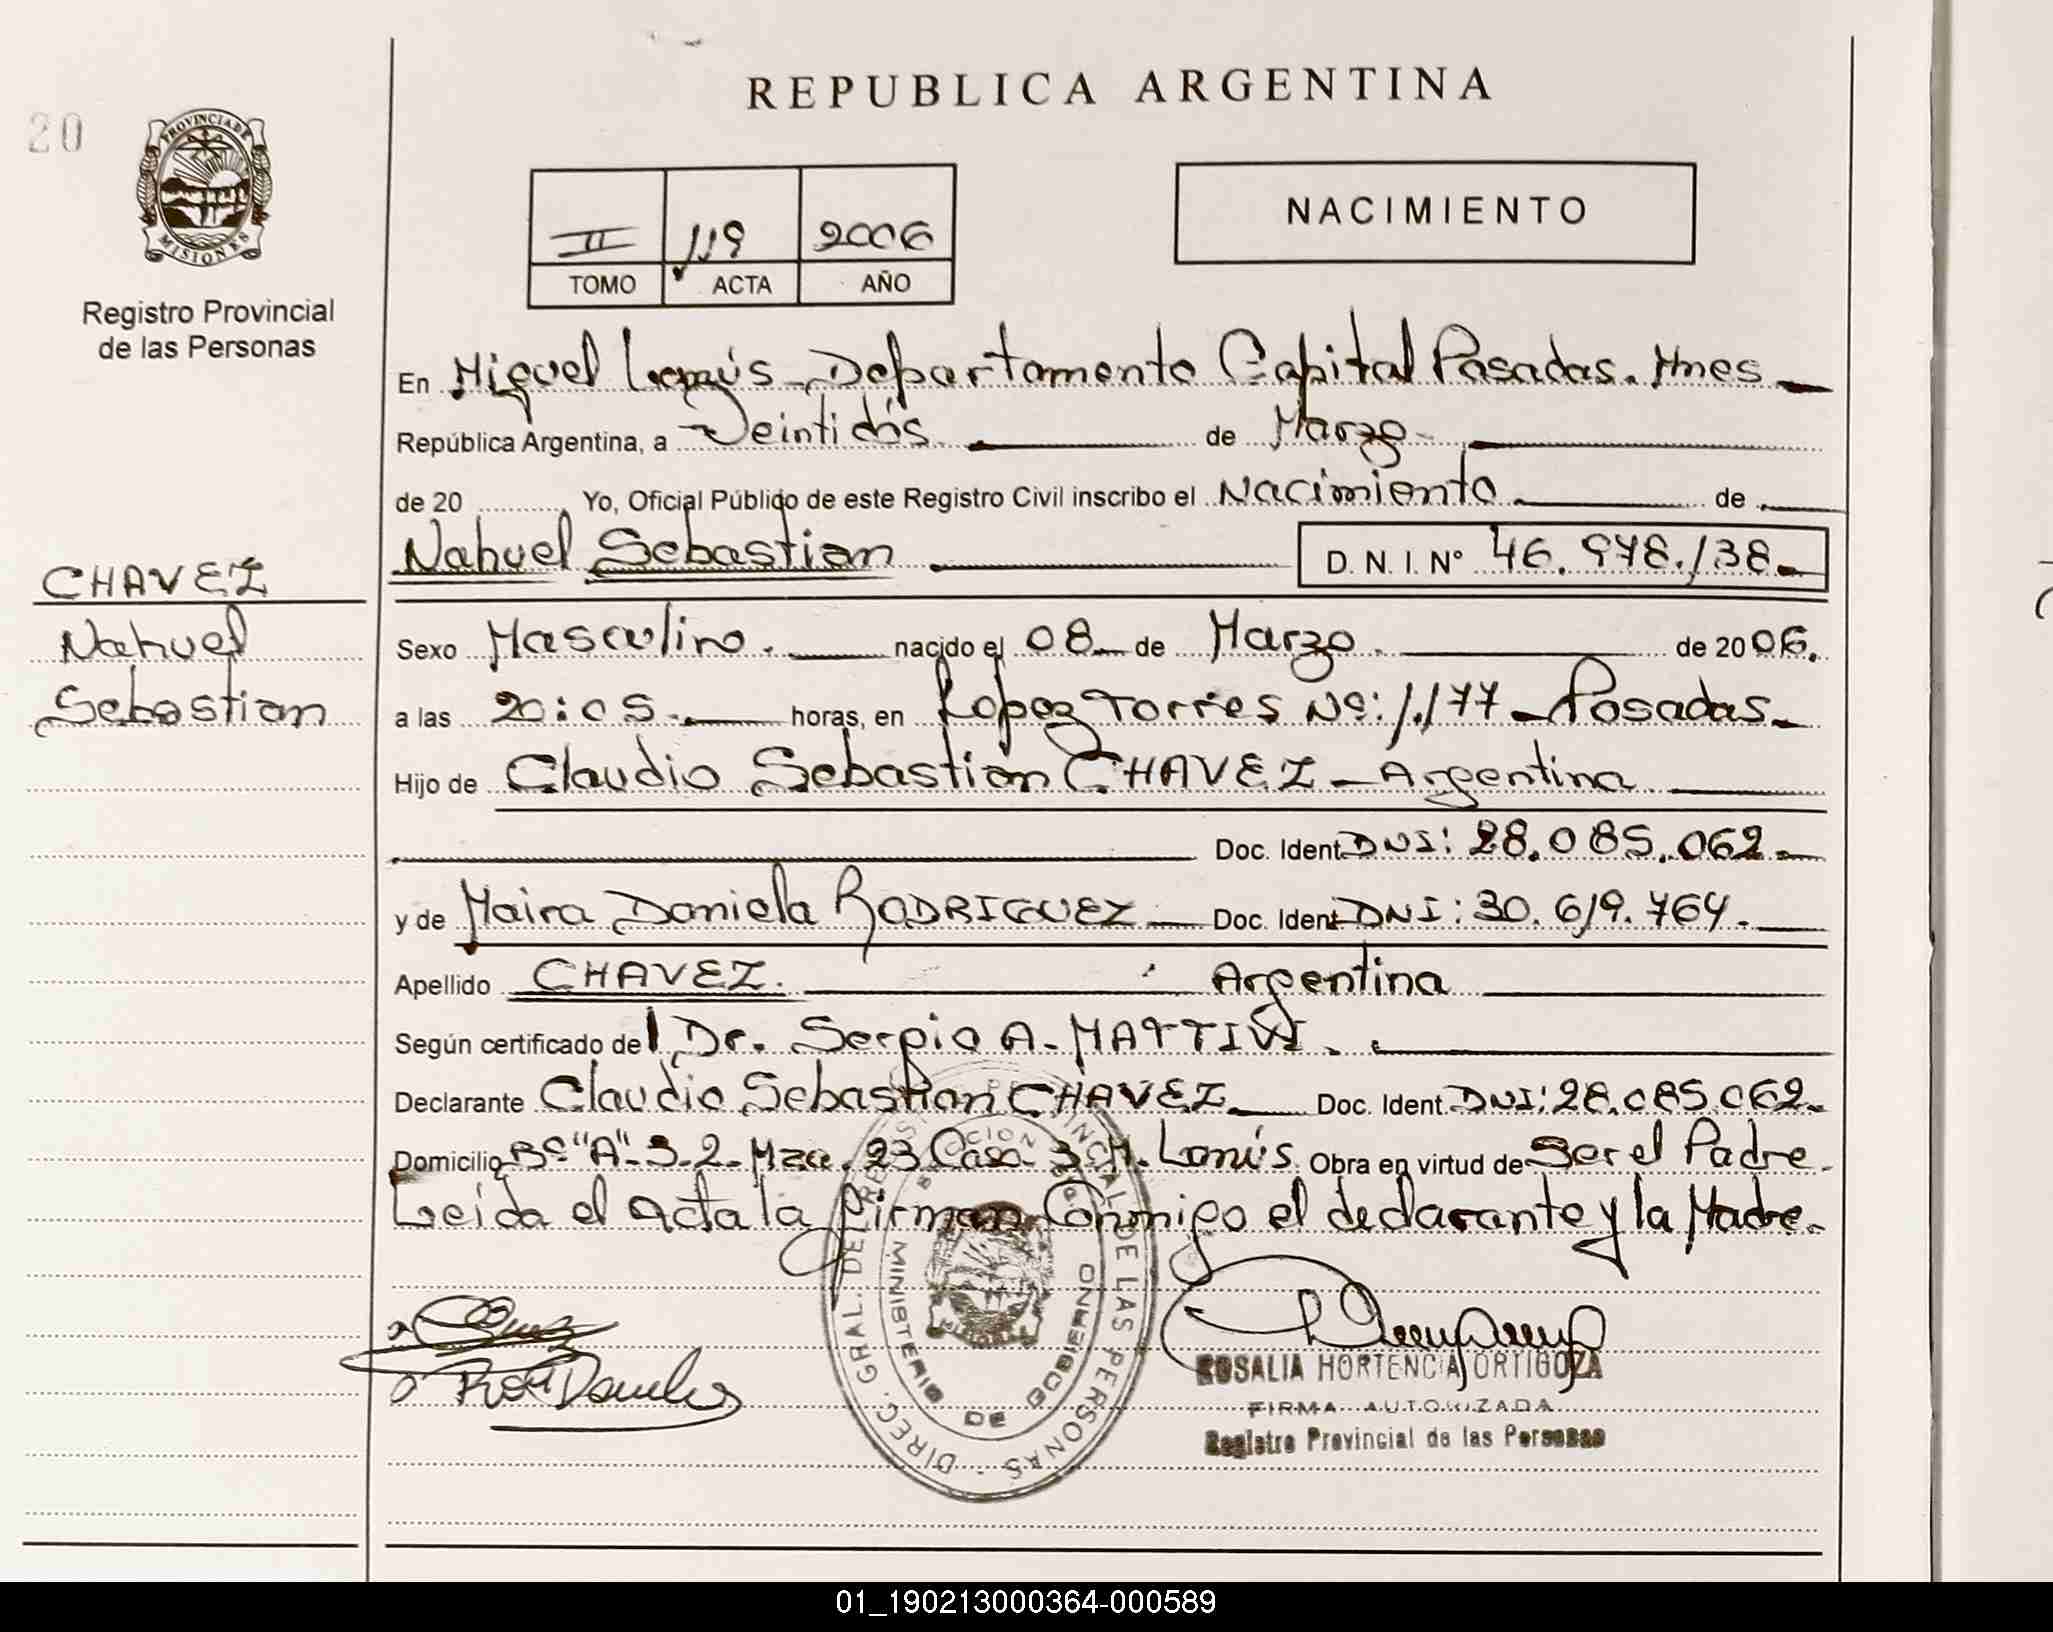 REPUBLICA ARGENTINA
20
PROVINCIA DE
MISIONES
Registro Provincial
de las Personas
II 119 2006
TOMO ACTA AÑO
NACIMIENTO
En Miguel Lanús - Departamento Capital Posadas. Mnes
República Argentina, a Veintidós de Marzo
de 20 Yo, Oficial Público de este Registro Civil inscribo el Nacimiento de
Nahuel Sebastian D. N. I. Nº 46.978.138
CHAVEZ
Nahuel
Sebastian
Sexo Masculino. nacido el 08 de Marzo. de 2006.
a las 20:05. horas, en Lopez Torres Nº: 1.177 - Posadas
Hijo de Claudio Sebastian CHAVEZ - Argentina
Doc. Ident. DNI: 28.085.062
y de Maira Daniela RODRIGUEZ Doc. Ident. DNI: 30.619.764.
Apellido CHAVEZ. Argentina
Según certificado del Dr. Sergio A. MATTIVI.
Declarante Claudio Sebastian CHAVEZ Doc. Ident. DNI: 28.085.062.
Domicilio Bº "A"-3-2-Mza. 23 Casa 3 M. Lanús. Obra en virtud de Ser el Padre.
Leída el acta la firman Conmigo el declarante y la Madre.
DIREC. GRAL. DEL REGISTRO PROVINCIAL DE LAS PERSONAS
MINISTERIO DE GOBIERNO
ROSALIA HORTENCIA ORTIGOZA
FIRMA AUTORIZADA
Registro Provincial de las Personas
01_190213000364-000589